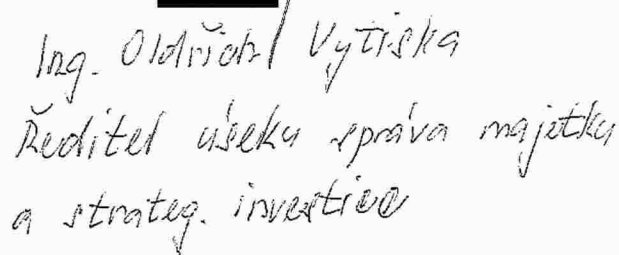 Ing. Oldřich Vytiska
Ředitel úseku správa majetku
a strateg. investice